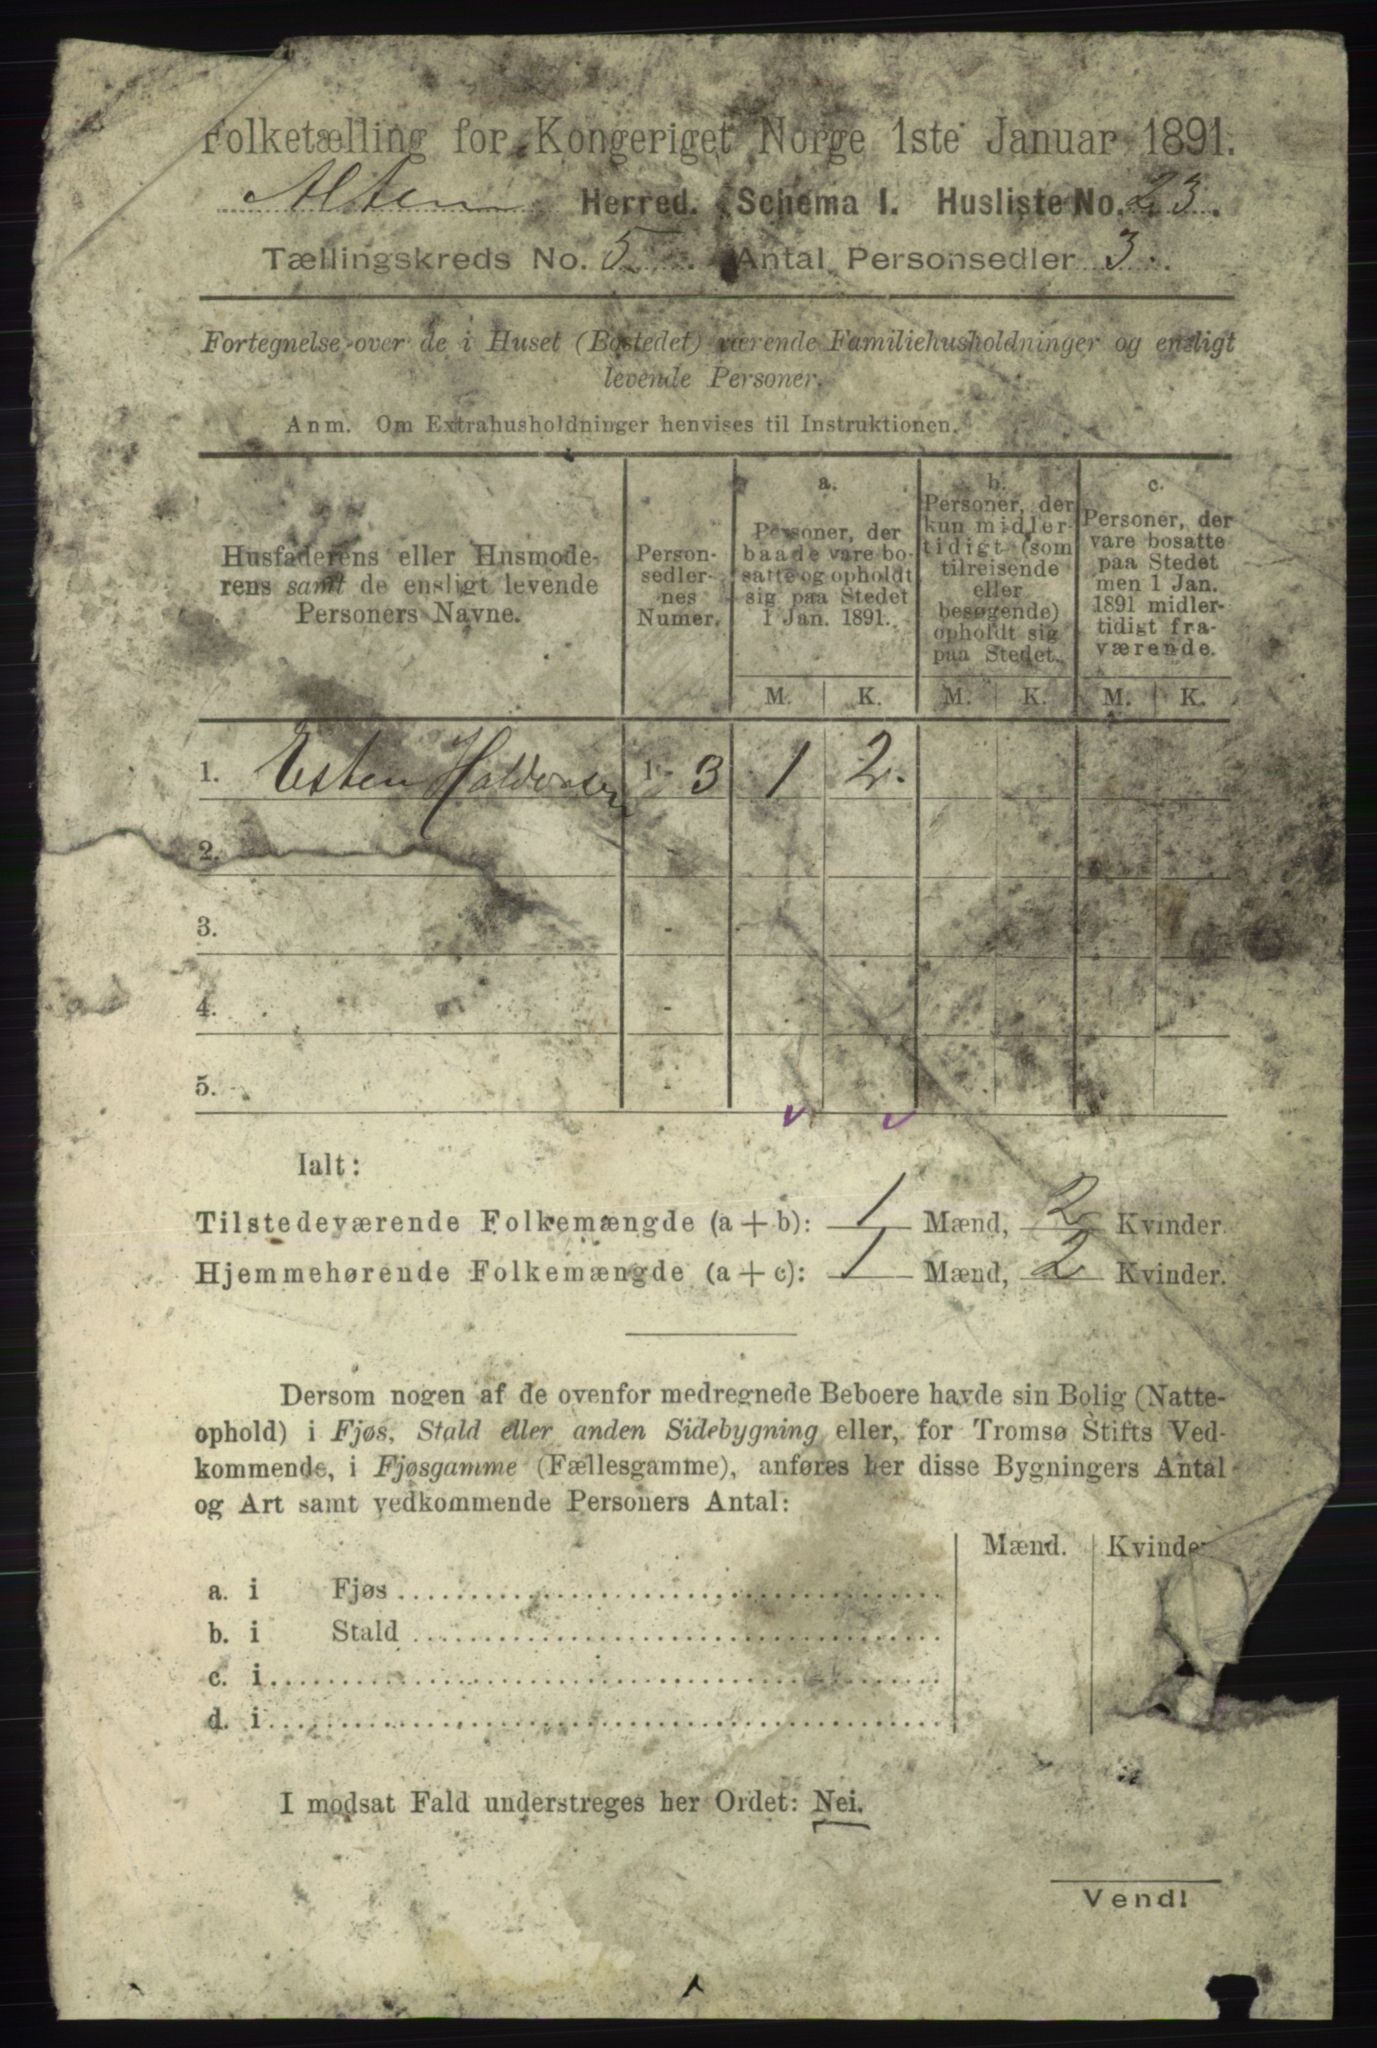 Folketælling for Kongeriget Norge 1ste Januar 1891.
Alten Herred. Schema I. Husliste No. 23.
Tællingskreds No. 5. Antal Personsedler 3.
Fortegnelse over de i Huset (Bostedet) værende Familiehusholdninger og ensligt
levende Personer.
Anm. Om Extrahusholdninger henvises til Instruktionen.
Husfaderens eller Husmode-
rens samt de ensligt levende
Personers Navne.
Person-
sedler-
nes
Numer.
a.
Personer, der
baade vare bo-
satte og opholdt
sig paa Stedet
1 Jan. 1891.
b.
Personer, der
kun midler-
tidigt (som
tilreisende
eller
besøgende)
opholdt sig
paa Stedet.
c.
Personer, der
vare bosatte
paa Stedet
men 1 Jan.
1891 midler-
tidigt fra-
værende.
M. K. M. K. M. K.
1. Esten Haldorsen 1 - 3 1 2.
2.
3. -
4. -
5. -
Ialt:
Tilstedeværende Folkemængde (a + b): 1 Mænd, 2 Kvinder.
Hjemmehørende Folkemængde (a + c): 1 Mænd, 2 Kvinder.
Dersom nogen af de ovenfor medregnede Beboere havde sin Bolig (Natte-
ophold) i Fjøs, Stald eller anden Sidebygning eller, for Tromsø Stifts Ved-
kommende, i Fjøsgamme (Fællesgamme), anføres her disse Bygningers Antal
og Art samt vedkommende Personers Antal:
Mænd. Kvinder
a. i Fjøs
b. i Stald
c. i
d. i
I modsat Fald understreges her Ordet: Nei.
Vend!